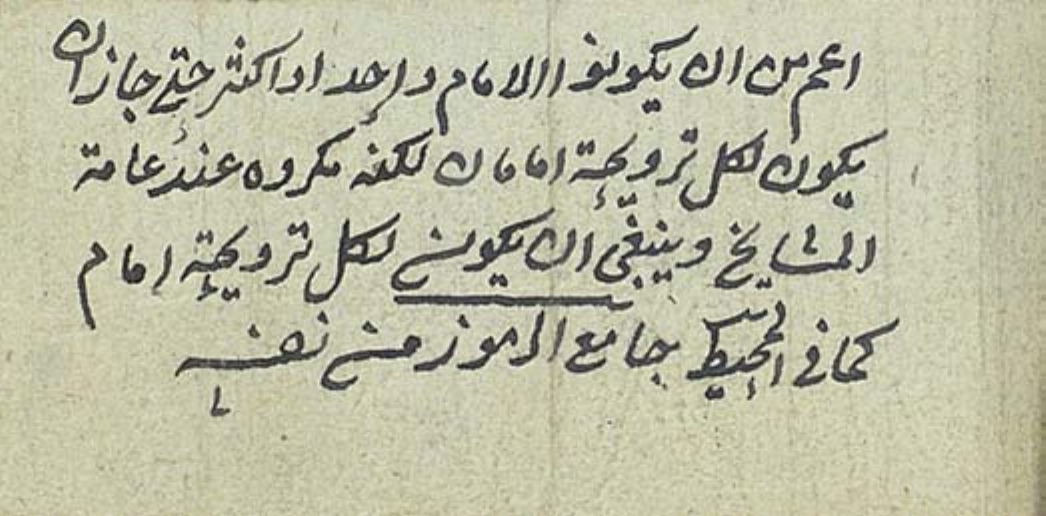 اعم من ان يكون الامام واحدا او اكثر حتى جاز ان
يكون لكل ترويحة امامان لكنه مكروه عند عامة
المشايخ وينبغى ان يكون لكل ترويحة امام
كما فى المحيط جامع الرموز من نفسه